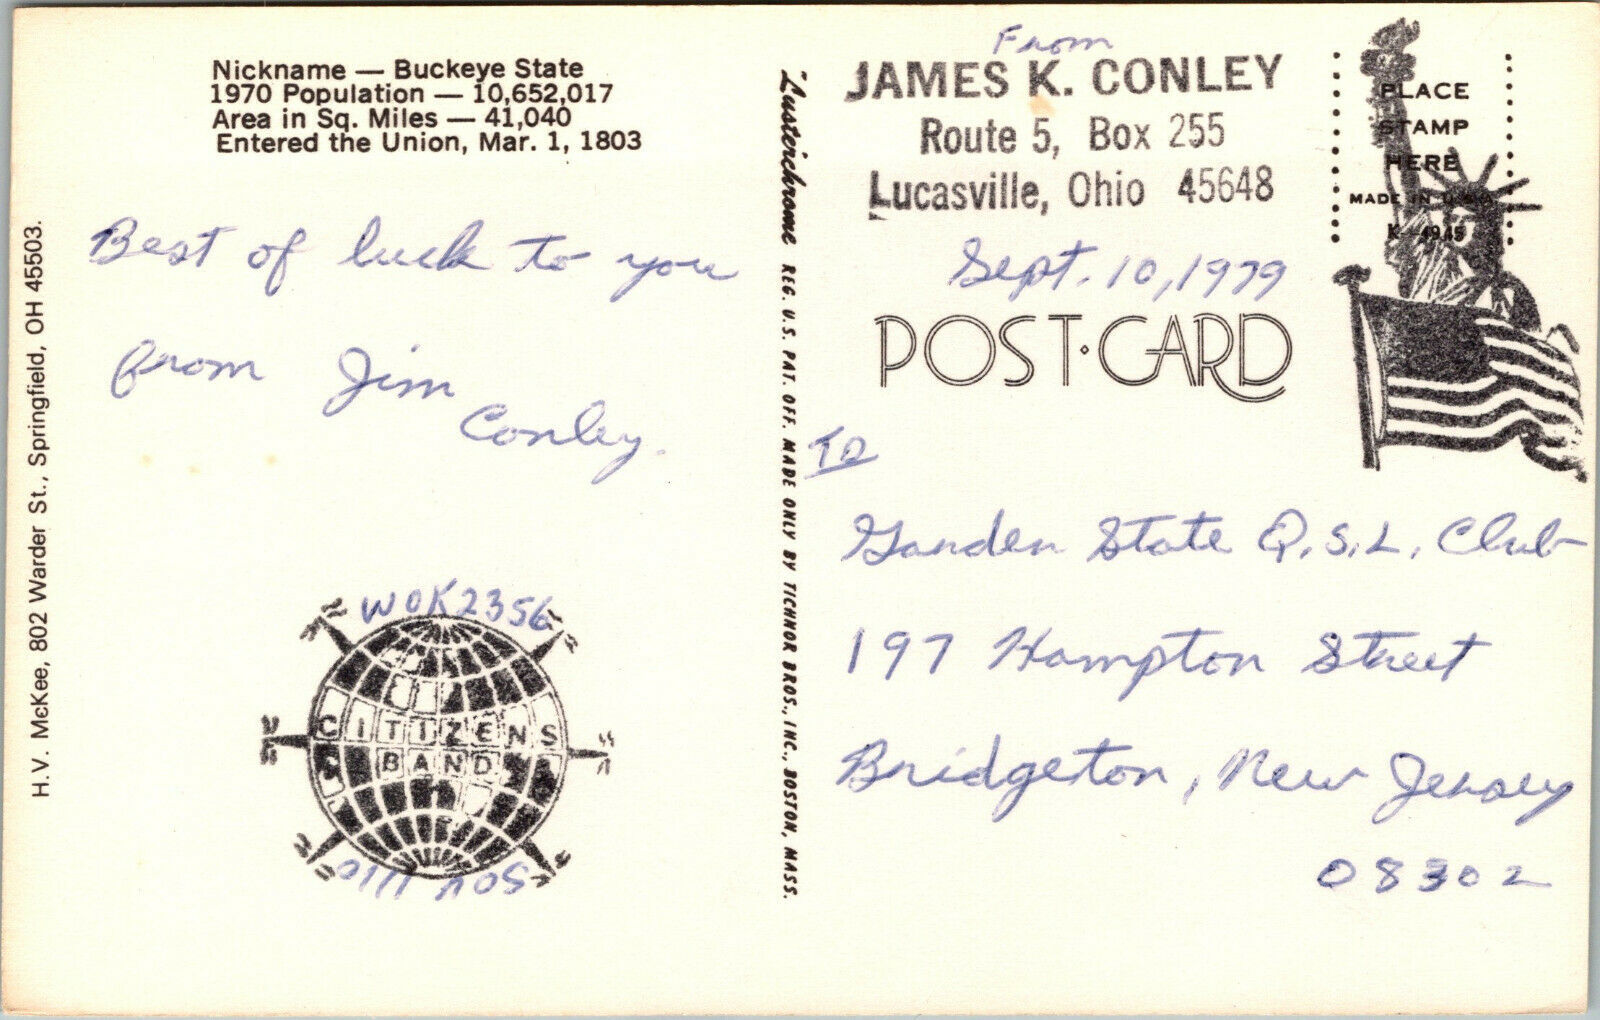 Nickname — Buckeye State
1970 Population — 10,652,017
Area in Sq. Miles — 41,040
Entered the Union, Mar. 1, 1803
H.V. McKee, 802 Warder St., Springfield, OH 45503.
Best of luck to you
from Jim
Conley.
WOK2356
CITIZENS
BAND
Lusterchrome REG. U.S. PAT. OFF. MADE ONLY BY TICHNOR BROS., INC., BOSTON, MASS.
From
JAMES K. CONLEY
Route 5, Box 255
Lucasville, Ohio 45648
Sept. 10, 1979
PLACE
STAMP
HERE
MADE IN U.S.A.
POST·CARD
To
Garden State Q.S.L. Club
197 Hampton Street
Bridgeton, New Jersey
08302